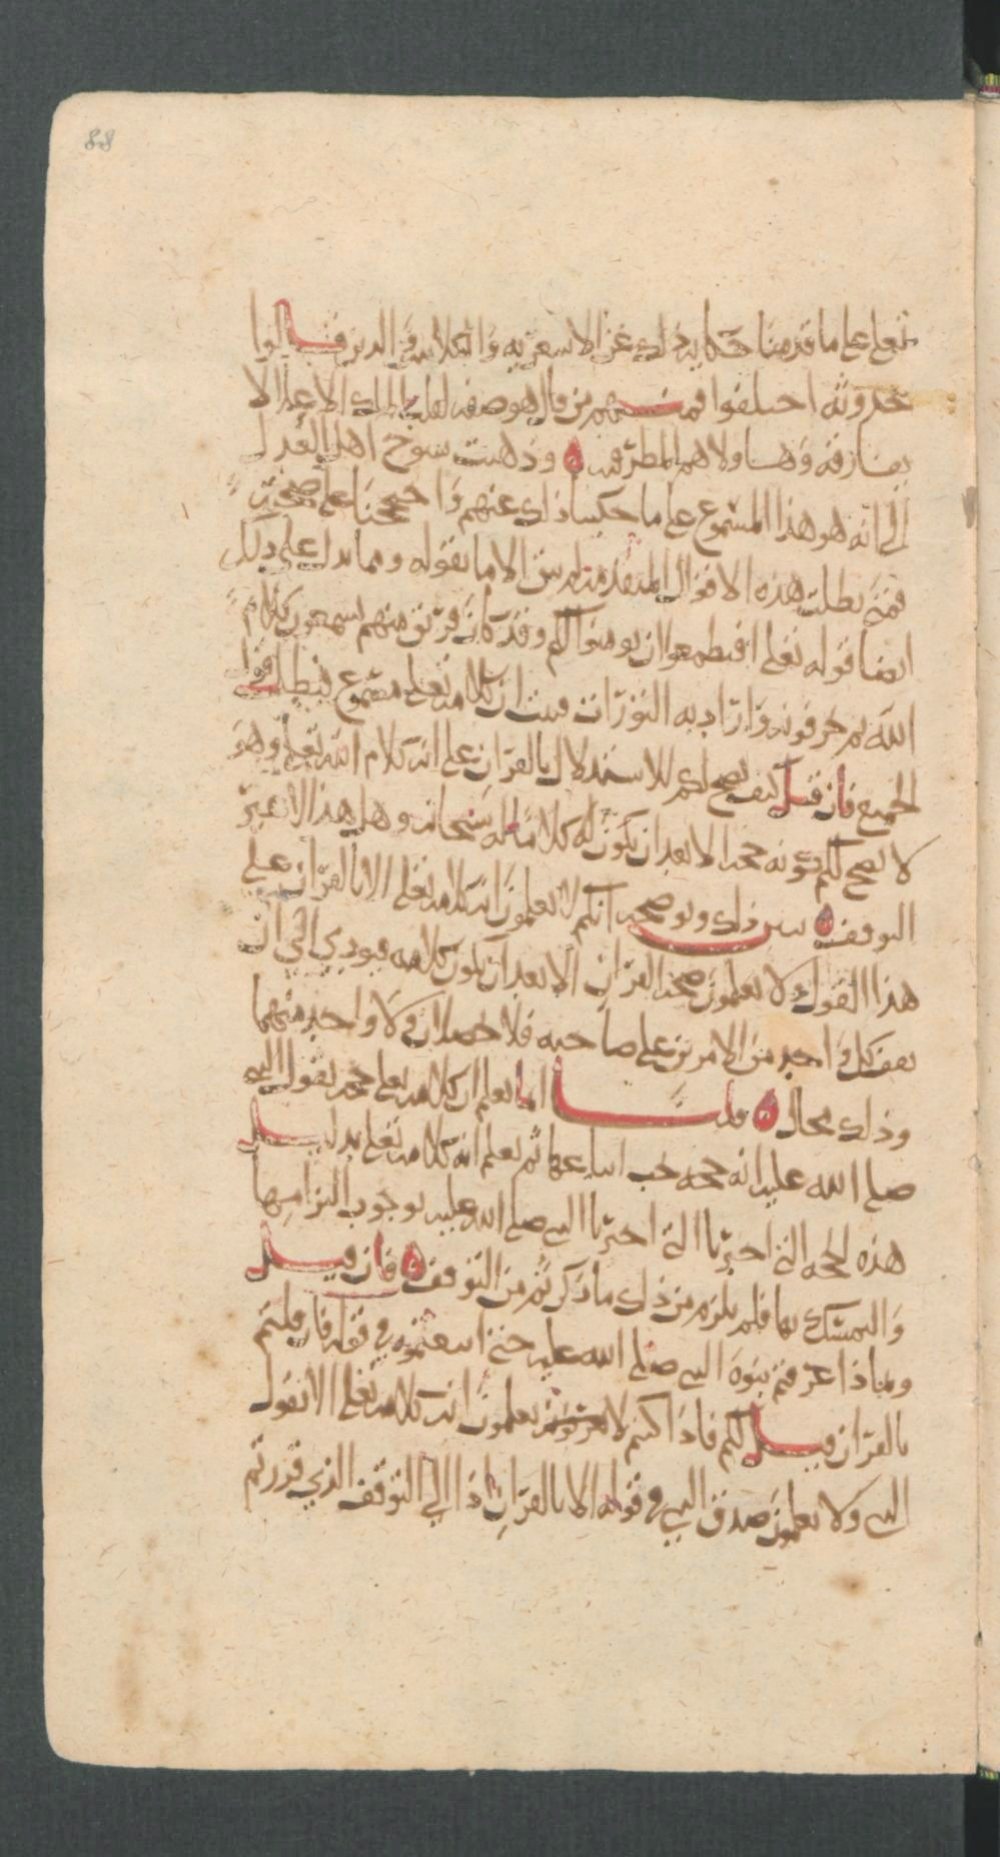 88
تعلى على ما قدمنا حكايه ذلك عن الاشعريه والكلابيه والذين قالوا
بحدوثه اختلفوا فمنهم من قال هو صفه لقلب الملك الاعلى لا
يفارقه وهاولا هم المطرفيه ٥ وذهبت شيوخ اهل العدل
الى انه هو هذا المسموع على ما حكينا ذلك عنهم واحتججنا على صحته
فمتى بطلت هذه الاقوال المتقدمه لم يبق الا ما نقوله ومما يدل على ذلك
ايضا قوله تعلى افتطمعون ان يومنوا لكم وقد كان فريق منهم يسمعون كلام
الله ثم يحرفونه واراد به التورات فثبت ان كلامه تعلى مسموع فبطل قول
الجميع فان قيل كيف يصح لكم الاستدلال بالقران على انه كلام الله تعلى وهو
لا يصح لكم كونه حجه الا بعد ان يكون له كلاما لله سبحانه وهل هذا الا عين
التوقف ٥ يبين ذلك ويوضحه انكم لا تعلمون انه كلامه تعلى الا بالقران على
هذا القول ولا تعلمون صحه القران الا بعد ان يكون كلامه فيودي الى ان
يقف كل واحد من الامرين على صاحبه فلا يحصلان ولا واحد منهما
وذلك محال ٥ قلنا انما نعلم ان كلامه تعلى حجه بقول النبي
صلى الله عليه انه حجه يجب اتباعها ثم نعلم انه كلامه تعلى بدليل
هذه الحجه التي اخبرنا التي اخبرنا النبي صلى الله عليه بوجوب التزامها
والتمسك بها فلم يلزم من ذلك ما ذكرتم من التوقف ٥ فان قيل
وبماذا عرفتم نبوه النبي صلى الله عليه حتى اتبعتموه في قوله فان قلتم
بالقران قيل لكم فاذا كنتم لا تعلمون انه كلامه تعلى الا بقول
النبي ولا تعلمون صدق النبي في قوله الا بالقران اذا الى التوقف الذي قررتم